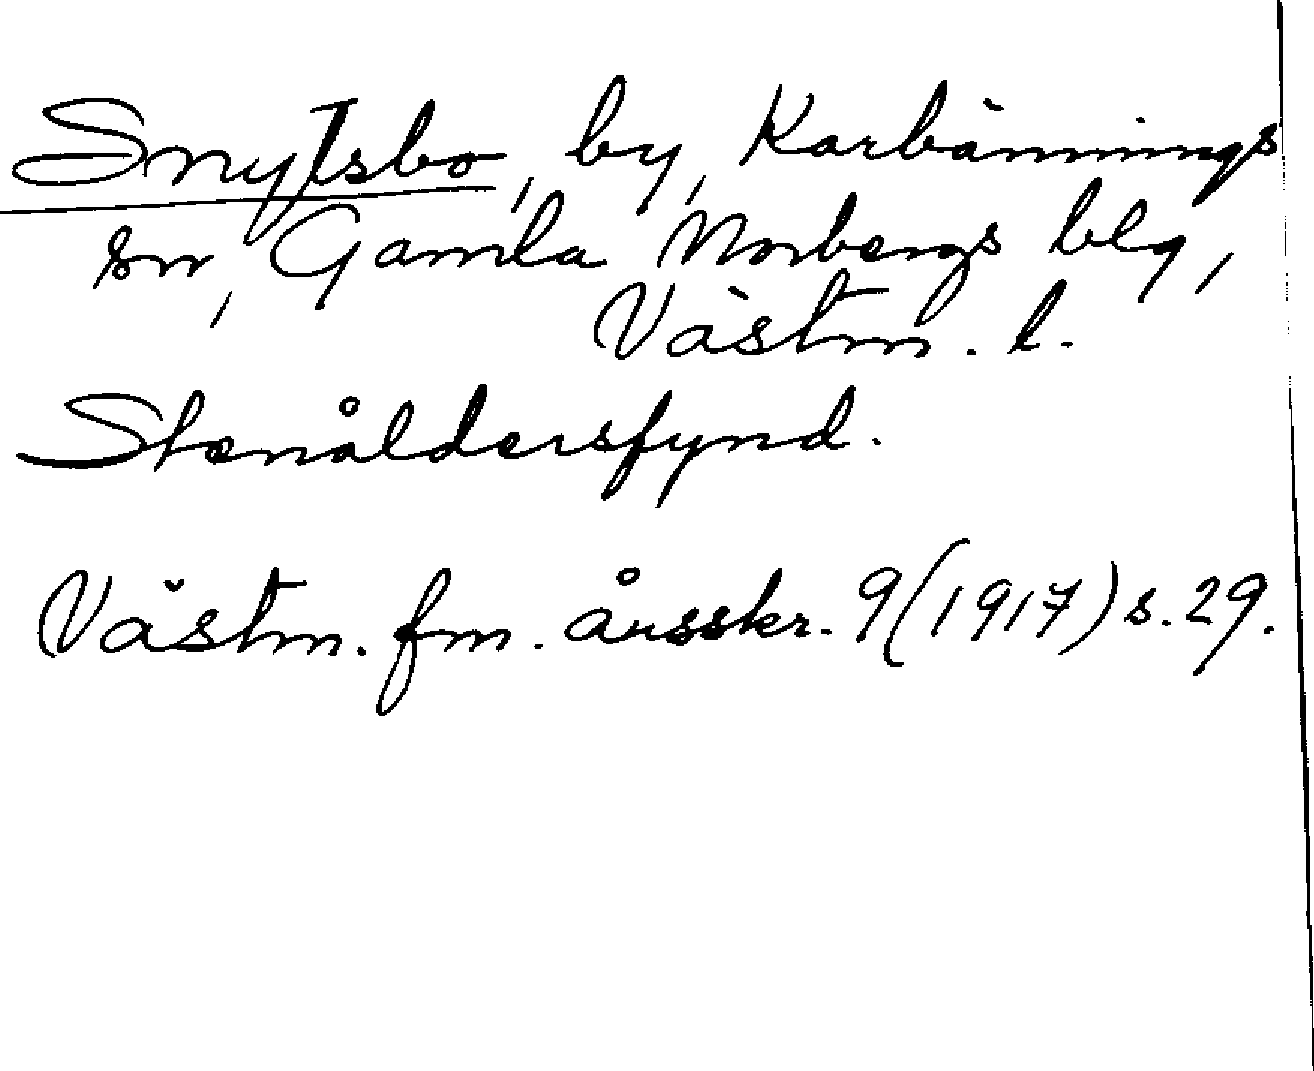 Snytsbo, by, Karbännings
sn, Gamla Norbergs blg,
Västm. l.
Stenåldersfynd.
Västm. fm. årsskr. 9 (1917) s. 29.